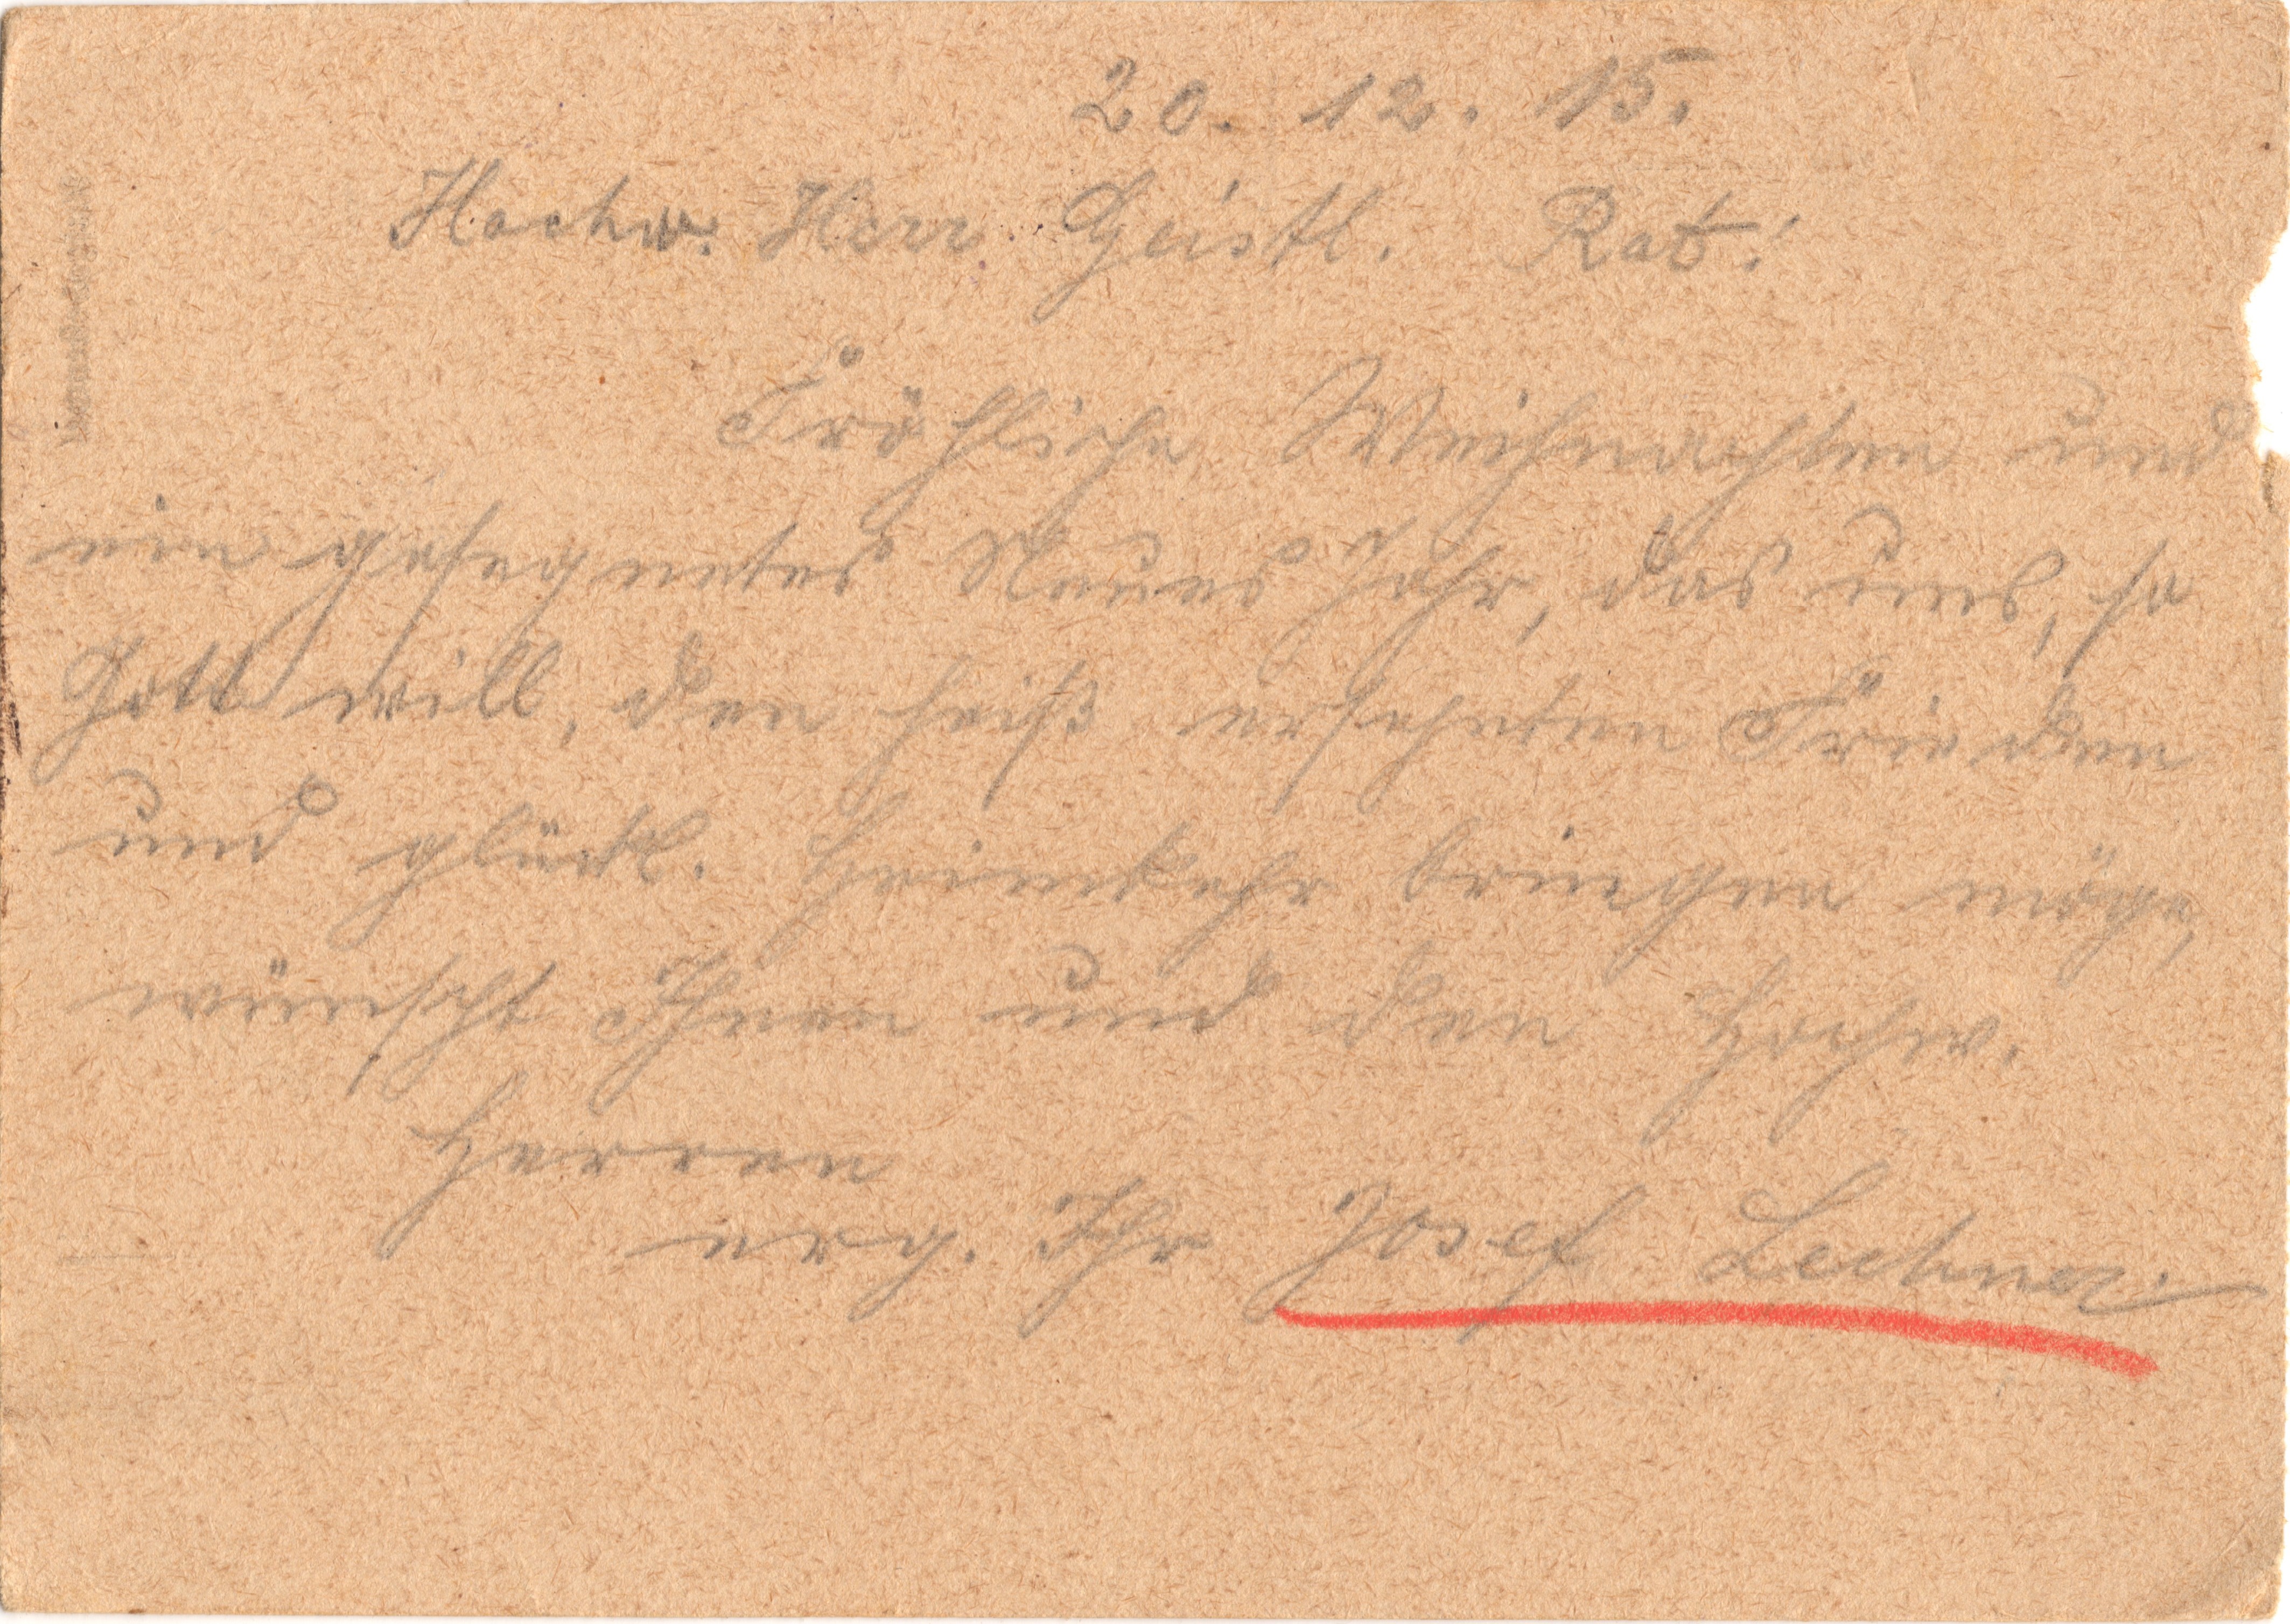 20. 12. 15.
Hochw. Herr Geistl. Rat!
Fröhliche Weihnachten und
ein gesegnetes Neues Jahr, das uns, so
Gott will, den heiß ersehnten Frieden
und glückl. Heimkehr bringen möge,
wünscht Ihnen und den Hochw.
Herren
erg. Ihr Josef Lechner.